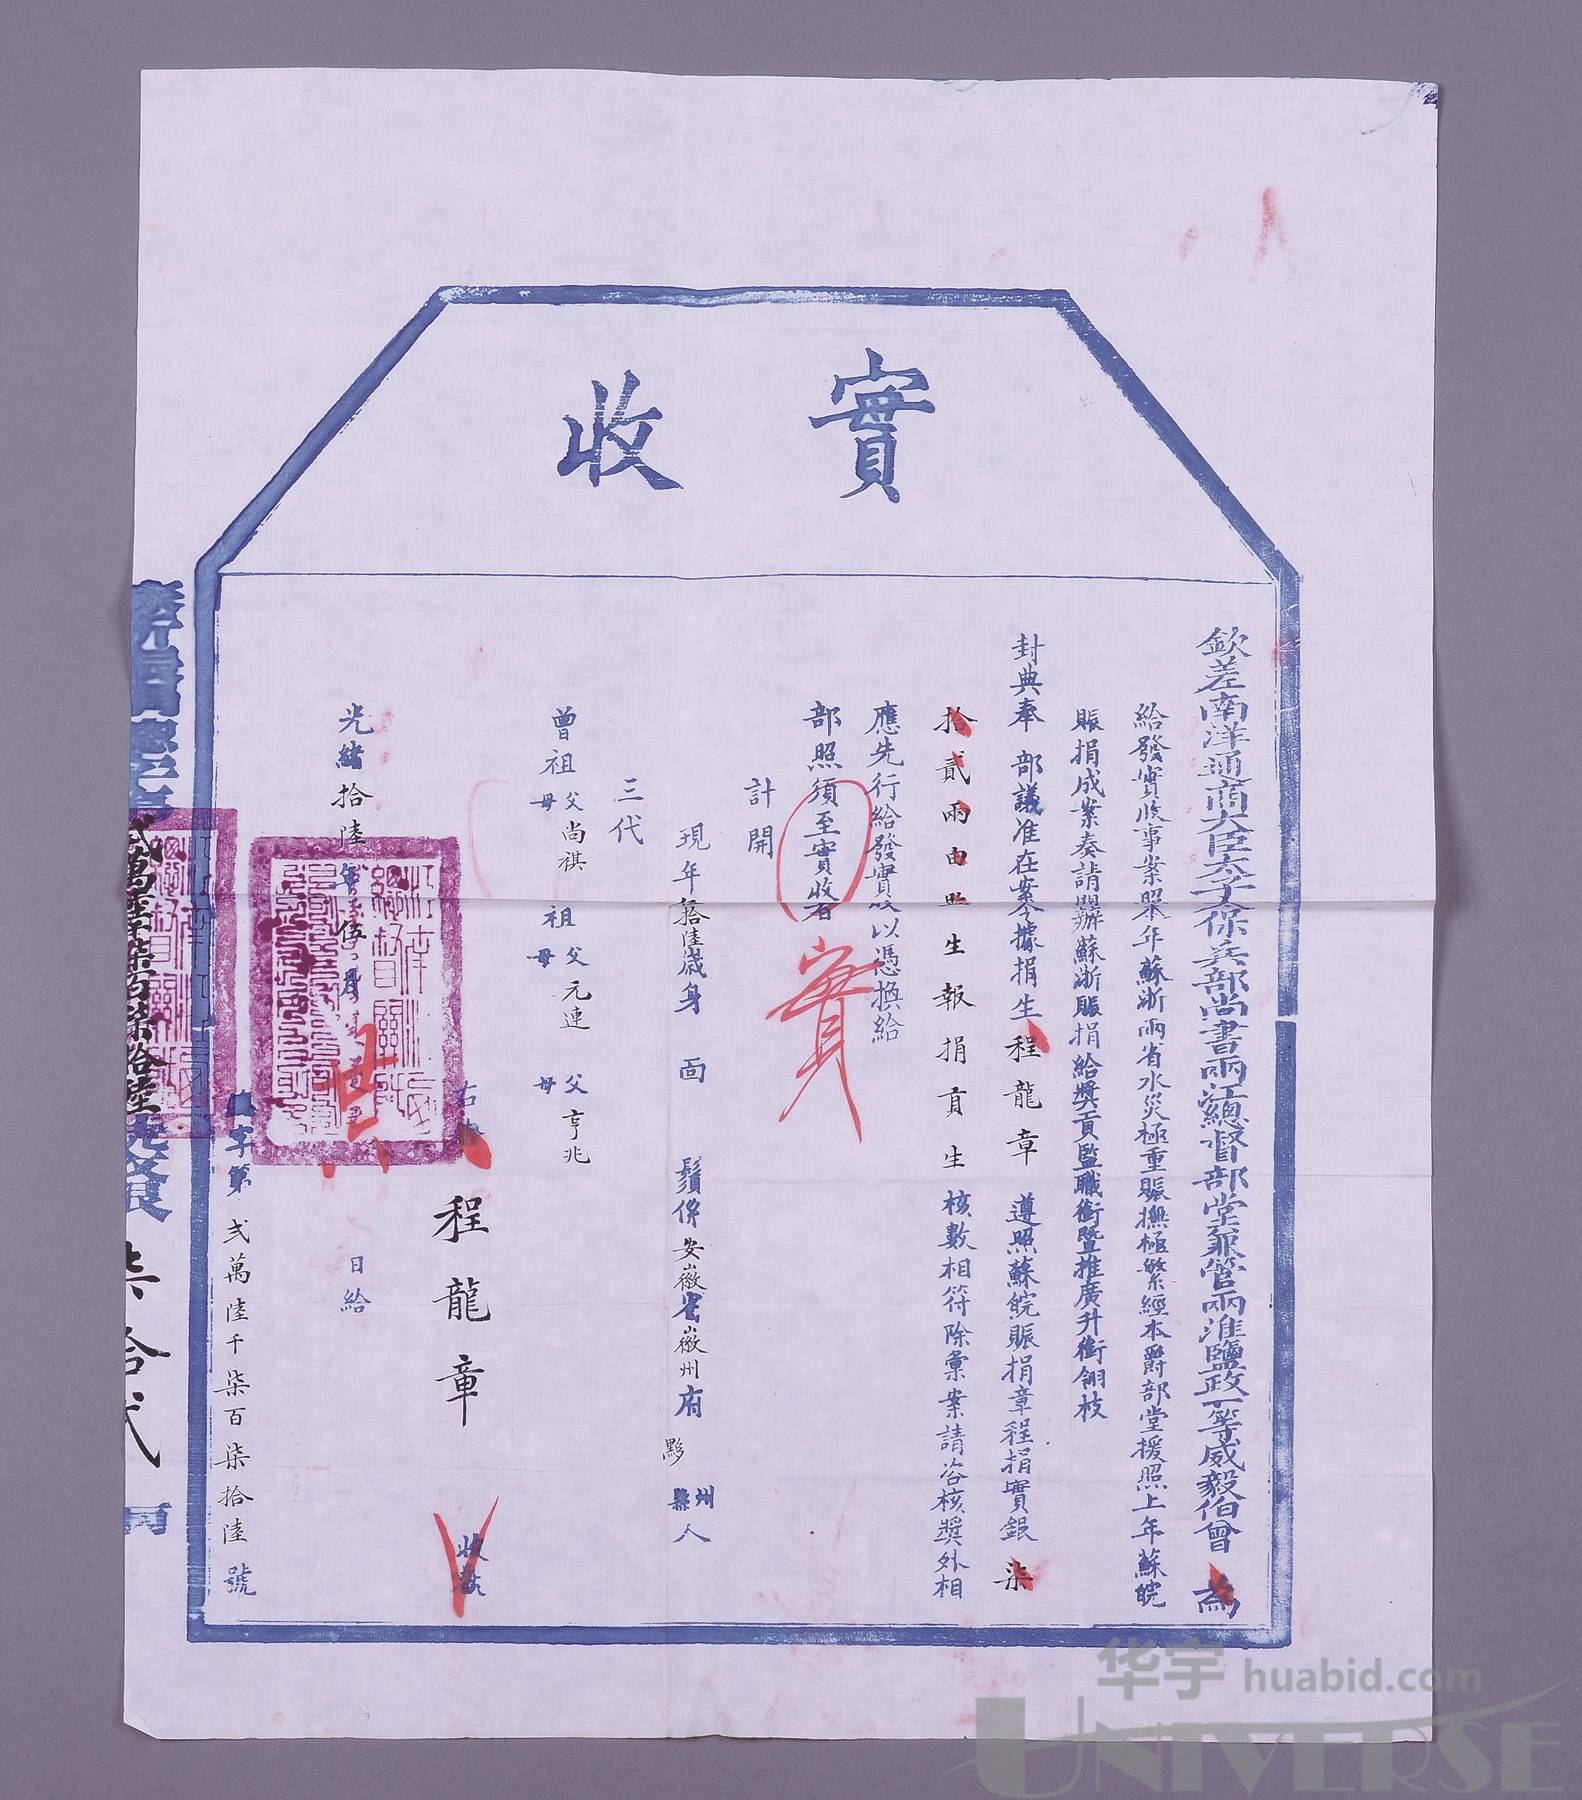 實收
欽差南洋通商大臣太子太保兵部尚書兩江總督部堂兼管兩淮鹽政一等威毅伯曾 為
給發實收事案照本年蘇浙兩省水災極重賑撫極繁經本爵部堂援照上年蘇皖
賑捐成案奏請開辦蘇浙賑捐給獎貢監職銜暨推廣升銜翎枝
封典奉 部議准在案今據捐生程龍章 遵照蘇皖賑捐章程捐實銀柒
拾貳兩由 生報捐貢生 核數相符除彙案請咨核獎外相
應先行給發實收以憑換給
部照須至實收者
實
計開
現年拾陸歲身 面 鬚係安徽省徽州府黟州縣人
三代
曾祖父尚祺 祖父元連 父亨兆
母 母 母
右 程龍章 收執
光緒拾陸年伍月 日給
字第弍萬陸千柒百柒拾陸號
弍萬陸千柒百柒拾陸號收銀柒拾弍兩
华宇 huabid.com
UNIVERSE